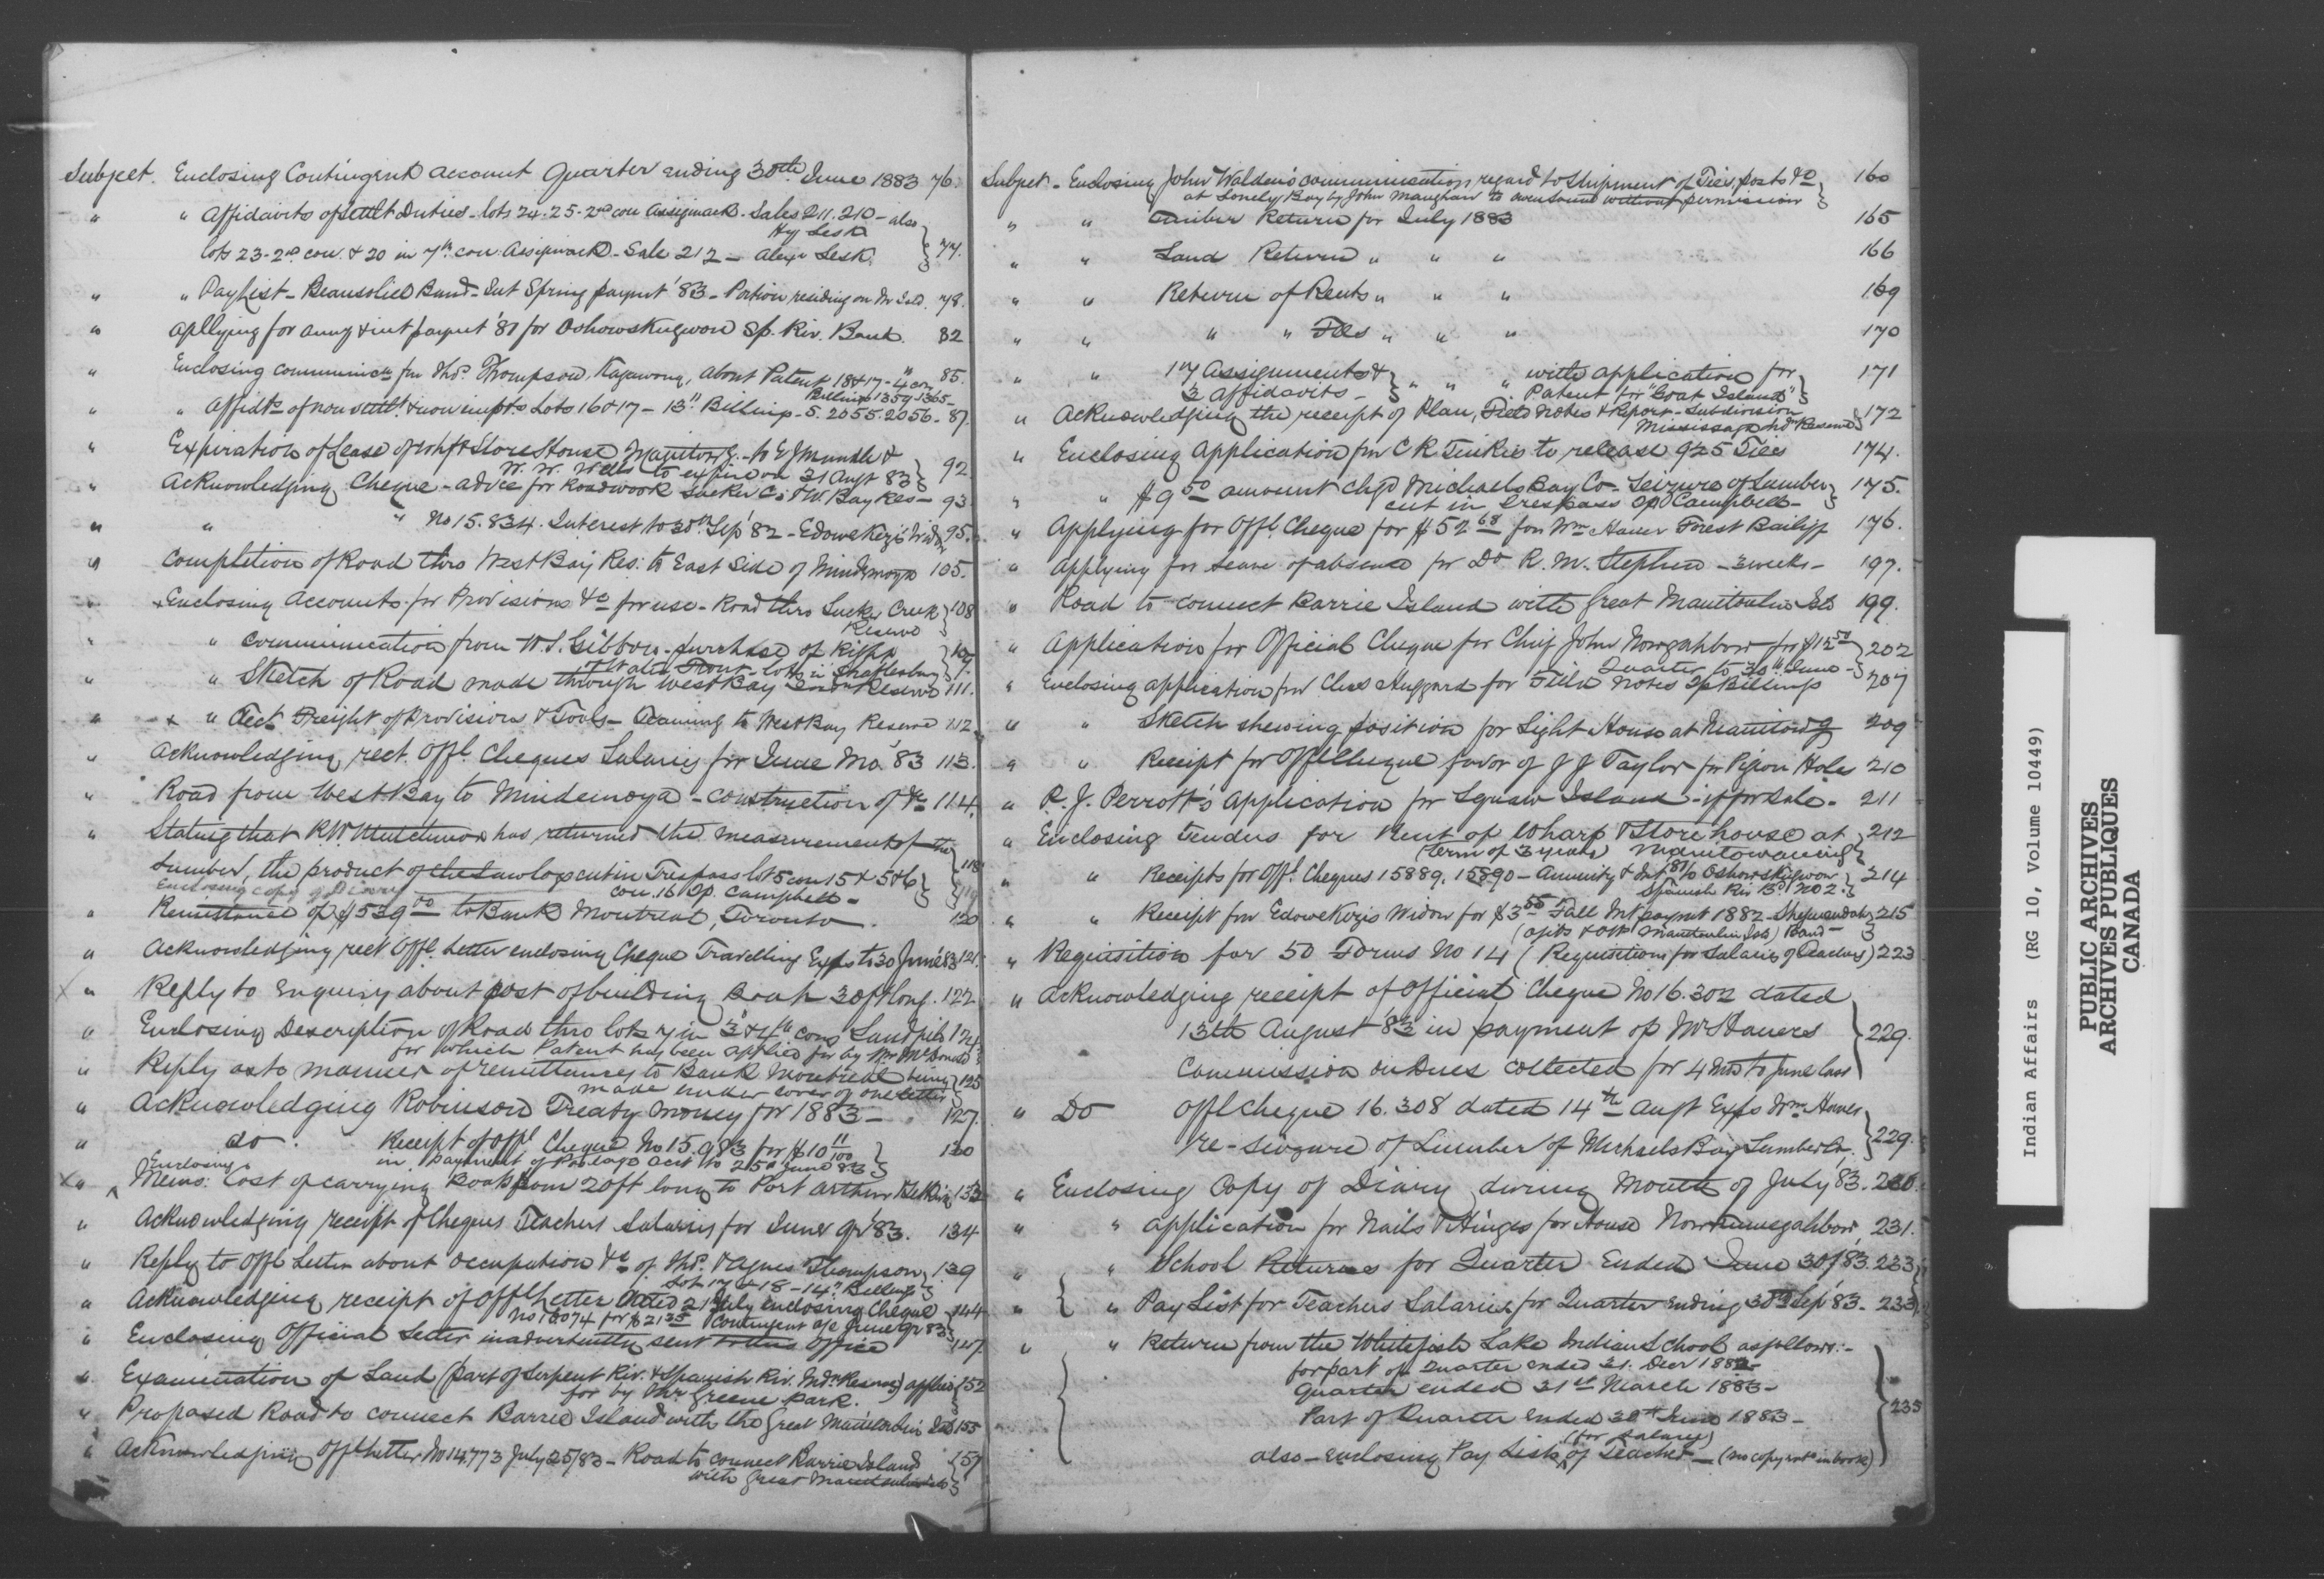 Subject. Enclosing Contingent account Quarter ending 30th June 1883 76.
" " Affidavits of Settlt Duties - lots 24. 25 - 2nd con Assiginack - Sales 211. 210 - also
Hy Lesk
lots 23 - 2nd con. & 20 in 7th con. Assiginack - Sale 212 - Alexr Lesk. } 77.
" " Pay List - Beausoliel Band - Int Spring paymt '83 - Portion residing on Mn Isld. 78.
" Apllying for anny & int paymt '81 for Oshowskugwon Sp. Riv. Band. 82
" Enclosing communictn frm Thos. Thompson, Kagawong, about Patent 18 & 17 - 4 con 85.
Billings 1359 1365 -
" " Affidts of non settlt & non impts Lots 16 & 17 - 13" Billings - S. 2055. 2056 - 87.
" Expiration of Lease of whf & Store House - to E J &
W. W. Wells to expire on 31 Augt 83 } 92
" Acknowledging Cheque - advice for Roadwork Sucker C. & W. Bay Res - 93
" " " No 15.834. Interest to 30th Sep '82 - Edowekezis Wid. 95.
" Completion of Road thro West Bay Res. to East Side of Mindemoya 105.
" x Enclosing Accounts for Provisions &c for use - Road thro Sucker Creek } 108
Reserve
" " Communication from W. S. Gibbon - purchase of Right
of Water Front - lots in Shaftesbury }
" " Sketch of Road made through West Bay Indn Reserve 111.
" x " Acct Freight of Provisions & Tools - Teaming to West Bay Reserve 112
" Acknowledging rect. Offl. Cheques Salaries for June Mo. '83 113.
" Road from West Bay to Mindemoya - construction of &c 114.
" Stating that R. W. has returned the measurement of the
Lumber, the product of the Sawlogs cut in Trespass lot 5 con 15 & 5 & 6 } 118
Enclosing copy of Diary con. 16 Tp. Campbell - 119
" Remittance of $539.00 to Bank Montreal, Toronto. 120
" Acknowledging rect Offl. Letter enclosing Cheque Travelling Exps to 30 June '83 121.
x " Reply to Enquiry about cost of building Boat 30ft long. 122
" Enclosing Description of Road thro lots in 3 & 4th cons Sandfield 124
for which Patent has been applied for by Mr McDonald }
" Reply as to manner of remittances to Bank Montreal being } 125
made under cover of one letter
" Acknowledging Robinson Treaty money for 1883 - 127.
" do. Receipt of Offl Cheque No 15.983 for $10 11/100 } 130
in payment of Postage acct to 25th June 83 }
Enclosing
x " ^ Memo: Cost of carrying Boat from 20ft long to Port Arthur 133
" Acknowledging receipt of Cheques Teachers Salaries for June qr '83. 134
" Reply to Offl Letter about occupation &c of Thos. & Agnes Thompson } 139
Lot 17 & 18 - 14th Billings }
" Acknowledging receipt of Offl Letter dated 21 July enclosing Cheque } 144
No 16074 for $21.35 Contingent a/c June qr 83 }
" Enclosing Official Letter inadvertently sent to this Office 147
" Examination of Land (part of Serpent Riv. & Spanish Riv. Indn Reserve) applied } 152
for by Mr Greene Park. }
" Proposed Road to connect Barrie Island with the Great Manitoulin Isld 155
" Acknowledging Offl Letter No 14773 July 25/83 - Road to connect Barrie Island } 157
with Great Manitoulin Isld }
Subject - Enclosing John Walden's communication regard to Shipment of Ties, posts &c } 160
at Lonely Bay by John Maughan to Owen Sound without permission }
" " Timber Return for July 1883 165
" " Land Return " " " 166
" " Return of Rents " " " 169
" " " " Fees " " " 170
" " 17 Assignments & } " " " with application for } 171
3 affidavits - } Patent for "Goat Island" }
" Acknowledging the receipt of Plan, Field Notes & Report - Subdivision } 172
Mississaga Ind Reserve }
" Enclosing Application frm C R Tinkis to release 925 Ties 174.
" " $9.50 amount chgd Michaels Bay Co - Seizure of Lumber } 175.
cut in Trespass Tp Campbell -
" Applying for Offl. Cheque for $52.68 for Wm Hawer Forest Bailiff 176.
" Applying for Leave of absence for Dr. R. M. Stephen - 3 weeks - 197.
" Road to connect Barrie Island with Great Manitoulin Isld 199.
" Application for Official Cheque for Chief John Nowgahbow for $12.50 } 202
Quarter to 30th June - }
" Enclosing application frm Chas Huggard for Field Notes Tp Billings 207
" " Sketch shewing position for Light House at Manitowg 209
" " Receipt for Offl Cheque favor of J J Taylor for Pigeon Holes 210
" R. J. Perrott's Application for Squaw Island - if for Sale - 211
" Enclosing tenders for Rent of Wharf & Storehouse at } 212
(term of 3 years) Manitowaning }
" " Receipts for Offl. Cheques 15889, 15890 - Annuity & Int '81/ Oshowskugwon } 214
Spanish Riv Bd No 2. }
" " Receipt frm Edowekezis Widow for $3.55 Fall Int paymt 1882 - Sheguiandah } 215
Manitoulin Isld) Band - }
" Requisition for 50 Forms No 14 (Requisitions for Salaries of Teachers) 223
" Acknowledging receipt of Official Cheque No 16.302 dated
13th August 83 in payment of Mr } 229.
Commission on dues collected for 4 mos to June last
" Do Offl Cheque 16.308 dated 14th Augt Exps Wm Hawer
re-seizure of Lumber of Michaels Bay Lumber Co, } 229.
" Enclosing Copy of Diary during Month of July '83. 230.
" " Application for Nails & Hinges for House 231.
" " School Returns for Quarter Ended June 30/83. 233
" { " Pay List for Teachers Salaries for Quarter Ending 30th Sep '83 - 233
" " Return from the Whitefish Lake Indian School as follows: -
for part of Quarter ended 31. Decr 1882 -
Quarter ended 31st March 1883 -
Part of Quarter ended 30th June 1883 - } 235
(for salary)
also - enclosing Pay Lists ^ of Teacher - (no copy in book)
Indian Affairs (RG 10, Volume 10449)
PUBLIC ARCHIVES
ARCHIVES PUBLIQUES
CANADA